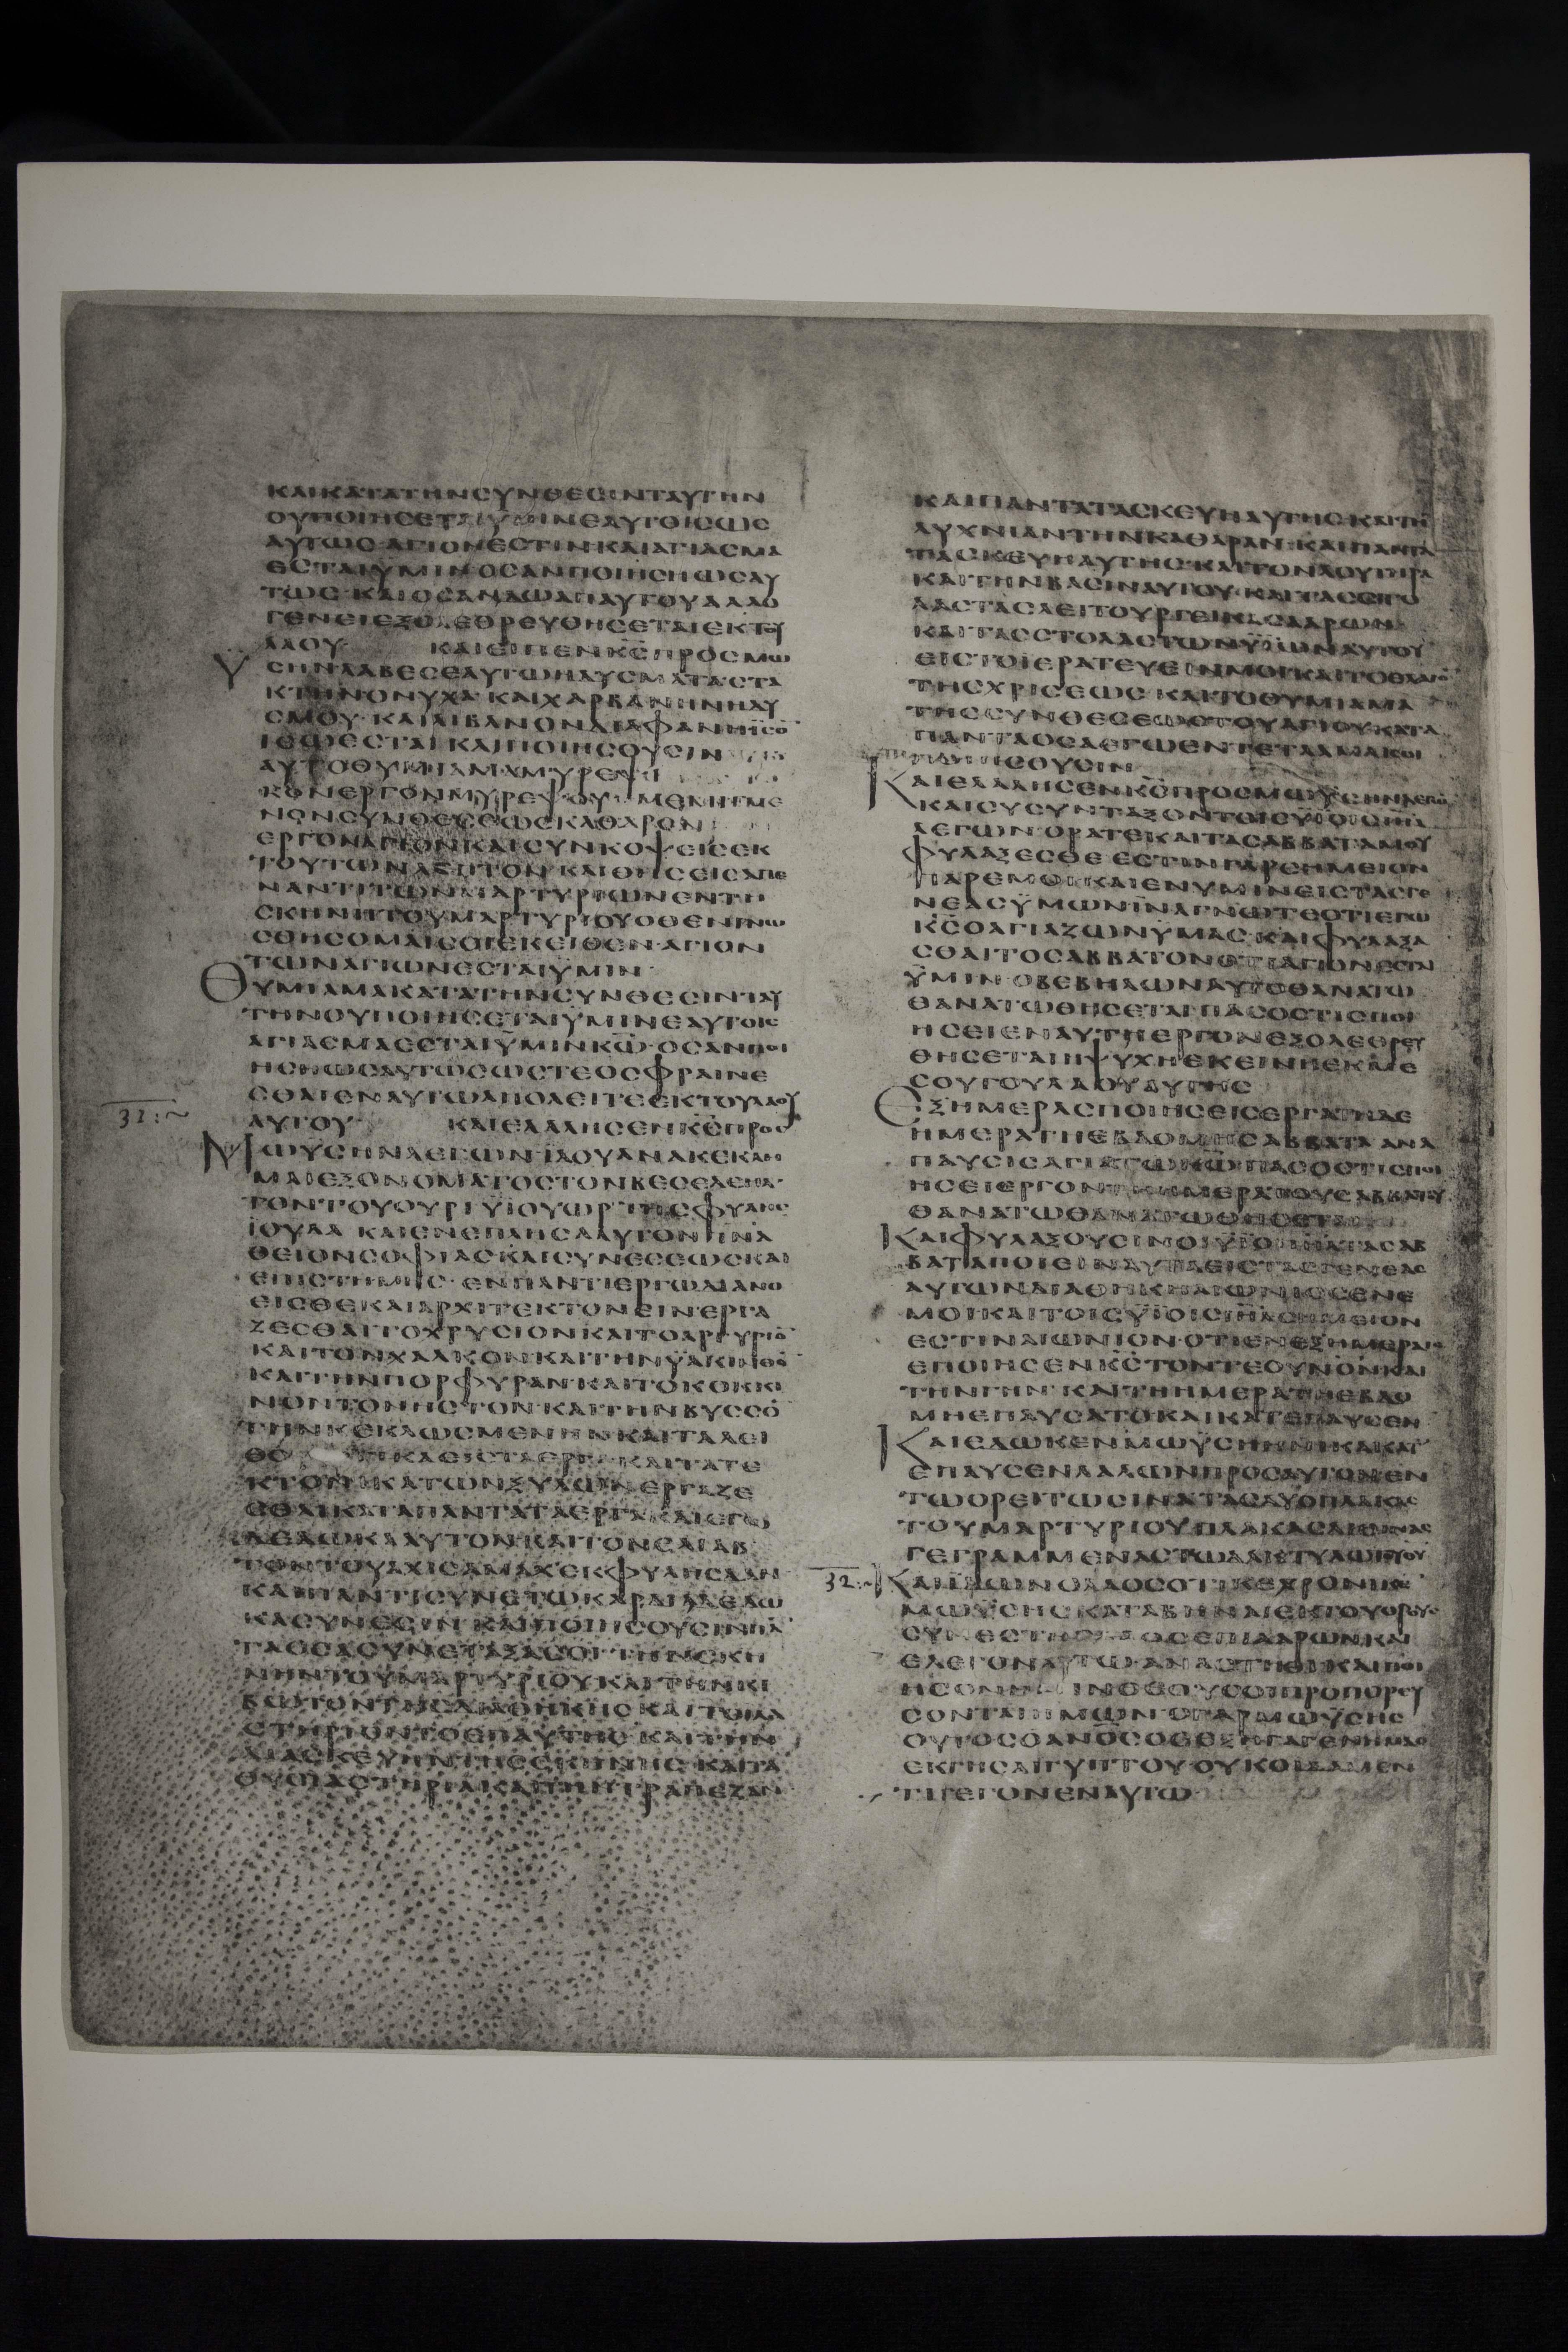 ΚΑΙΚΑΤΑΤΗΝΣΥΝΘΕΣΙΝΤΑΥΤΗΝ
ΟΥΠΟΙΗΣΕΤΑΙΥΜΙΝΕΑΥΤΟΙΣΩΣ
ΑΥΤΩΣ·ΑΓΙΟΝΕΣΤΙΝΚΑΙΑΓΙΑΣΜΑ
ΕΣΤΑΙΥΜΙΝ·ΟΣΑΝΠΟΙΗΣΗΩΣΑΥ
ΤΩΣ·ΚΑΙΟΣΑΝΔΩΑΠΑΥΤΟΥΑΛΛΟ
ΓΕΝΕΙΕΞΟΛΕΘΡΕΥΘΗΣΕΤΑΙΕΚΤΟΥ
ΛΑΟΥ· ΚΑΙΕΙΠΕΝΚΣΠΡΟΣΜΩ
ΥΣΗΝΛΑΒΕΣΕΑΥΤΩΗΔΥΣΜΑΤΑΣΤΑ
ΚΤΗΝΟΝΥΧΑ·ΚΑΙΧΑΡΒΑΝΗΝΗΔΥ
ΣΜΟΥ·ΚΑΙΛΙΒΑΝΟΝΔΙΑΦΑΝΗΪΣΟ
ΙΣΩΕΣΤΑΙ·ΚΑΙΠΟΙΗΣΟΥΣΙΝ
ΑΥΤΟΘΥΜΙΑΜΑΜΥΡΕΨΙ
ΚΟΝΕΡΓΟΝΜΥΡΕΨΟΥΜΕΜΙΓΜΕ
ΝΟΝΣΥΝΘΕΣΕΩΣΚΑΘΑΡΟΝ
ΕΡΓΟΝΑΓΙΟΝΚΑΙΣΥΝΚΟΨΕΙΣΕΚ
ΤΟΥΤΩΝΛΕΠΤΟΝ·ΚΑΙΘΗΣΕΙΣΑΠΕ
ΝΑΝΤΙΤΩΝΜΑΡΤΥΡΙΩΝΕΝΤΗ
ΣΚΗΝΗΤΟΥΜΑΡΤΥΡΙΟΥΟΘΕΝΓΝΩ
ΣΘΗΣΟΜΑΙΣΟΙΕΚΕΙΘΕΝ·ΑΓΙΟΝ
ΤΩΝΑΓΙΩΝΕΣΤΑΙΥΜΙΝ·
ΘΥΜΙΑΜΑΚΑΤΑΤΗΝΣΥΝΘΕΣΙΝΤΑΥ
ΤΗΝΟΥΠΟΙΗΣΕΤΑΙΥΜΙΝΕΑΥΤΟΙΣ
ΑΓΙΑΣΜΑΕΣΤΑΙΥΜΙΝΚΩ·ΟΣΑΝΠΟΙ
ΗΣΗΩΣΑΥΤΩΣΩΣΤΕΟΣΦΡΑΙΝΕ
ΣΘΑΙΕΝΑΥΤΩΑΠΟΛΕΙΤΕΕΚΤΟΥΛΑΟΥ
31:~
ΑΥΤΟΥ· ΚΑΙΕΛΑΛΗΣΕΝΚΣΠΡΟΣ
ΜΩΥΣΗΝΛΕΓΩΝ·ΪΔΟΥΑΝΑΚΕΚΛΗ
ΜΑΙΕΞΟΝΟΜΑΤΟΣΤΟΝΒΕΣΕΛΕΗΛ·
ΤΟΝΤΟΥΟΥΡΙΥΪΟΥΩΡΤΗΣΦΥΛΗΣ
ΪΟΥΔΑ ΚΑΙΕΝΕΠΛΗΣΑΑΥΤΟΝΠΝΑ
ΘΕΙΟΝΣΟΦΙΑΣΚΑΙΣΥΝΕΣΕΩΣΚΑΙ
ΕΠΙΣΤΗΜΗΣ·ΕΝΠΑΝΤΙΕΡΓΩΔΙΑΝΟ
ΕΙΣΘΕΚΑΙΑΡΧΙΤΕΚΤΟΝΕΙΝ·ΕΡΓΑ
ΖΕΣΘΑΙΤΟΧΡΥΣΙΟΝΚΑΙΤΟΑΡΓΥΡΙΟ
ΚΑΙΤΟΝΧΑΛΚΟΝ·ΚΑΙΤΗΝΥΑΚΙΝΘΟ
ΚΑΙΤΗΝΠΟΡΦΥΡΑΝ·ΚΑΙΤΟΚΟΚΚΙ
ΝΟΝΤΟΝΗΣΤΟΝ·ΚΑΙΤΗΝΒΥΣΣΟ
ΤΗΝΚΕΚΛΩΣΜΕΝΗΝ·ΚΑΙΤΑΛΕΙ
ΘΟ ΚΑΕΙΣΤΑΕΡΓΑ·ΚΑΙΤΑΤΕ
ΚΤΟΝΙΚΑΤΩΝΞΥΛΩΝ·ΕΡΓΑΖΕ
ΣΘΑΙΚΑΤΑΠΑΝΤΑΤΑΕΡΓΑ·ΚΑΙΕΓΩ
ΔΕΔΩΚΑΑΥΤΟΝΚΑΙΤΟΝΕΛΙΑΒ
ΤΟΝΤΟΥΑΧΙΣΑΜΑΧΕΚΦΥΛΗΣΔΑΝ
ΚΑΙΠΑΝΤΙΣΥΝΕΤΩΚΑΡΔΙΑΔΕΔΩ
ΚΑΣΥΝΕΣΙΝ ΚΑΙΠΟΙΗΣΟΥΣΙΝΠΑ
ΤΑΟΣΑΣΥΝΕΤΑΞΑΣΟΙ·ΤΗΝΣΚΗ
ΝΗΝΤΟΥΜΑΡΤΥΡΙΟΥΚΑΙΤΗΝΚΙ
ΒΩΤΟΝΤΗΣΔΙΑΘΗΚΗΣ·ΚΑΙΤΟΙΛΑ
ΣΤΗΡΙΟΝΤΟΕΠΑΥΤΗΣ·ΚΑΙΤΗΝ
ΔΙΑΣΚΕΥΗΝΤΗΣΣΚΗΝΗΣ·ΚΑΙΤΑ
ΘΥΣΙΑΣΤΗΡΙΑ·ΚΑΙΤΗΝΤΡΑΠΕΖΑΝ
ΚΑΙΠΑΝΤΑΤΑΣΚΕΥΗΑΥΤΗΣ·ΚΑΙΤΗ
ΛΥΧΝΙΑΝΤΗΝΚΑΘΑΡΑΝ·ΚΑΙΠΑΝΤΑ
ΤΑΣΚΕΥΗΑΥΤΗΣ·ΚΑΙΤΟΝΛΟΥΤΗΡΑ
ΚΑΙΤΗΝΒΑΣΙΝΑΥΤΟΥ·ΚΑΙΤΑΣΣΤΟ
ΛΑΣΤΑΣΛΕΙΤΟΥΡΓΕΙΚΑΣΑΑΡΩΝ·
ΚΑΙΤΑΣΣΤΟΛΑΣΤΩΝΥΪΩΝΑΥΤΟΥ
ΕΙΣΤΟΙΕΡΑΤΕΥΕΙΝΜΟΙ·ΚΑΙΤΟΕΛΑΙΟ
ΤΗΣΧΡΙΣΕΩΣ·ΚΑΙΤΟΘΥΜΙΑΜΑ
ΤΗΣΣΥΝΘΕΣΕΩΣΤΟΥΑΓΙΟΥ·ΚΑΤΑ
ΠΑΝΤΑΟΣΑΕΓΩΕΝΤΕΤΑΛΜΑΙΣΟΙ
ΠΟΙΗΣΟΥΣΙΝ
ΚΑΙΕΛΑΛΗΣΕΝΚΣΠΡΟΣΜΩΥΣΗΝΛΕΓΩ
ΚΑΙΣΥΣΥΝΤΑΞΟΝΤΟΙΣΥΪΟΙΣΙΗΛ
ΛΕΓΩΝ·ΟΡΑΤΕΚΑΙΤΑΣΑΒΒΑΤΑΜΟΥ
ΦΥΛΑΞΕΣΘΕ ΕΣΤΙΝΓΑΡΣΗΜΕΙΟΝ
ΠΑΡΕΜΟΙΚΑΙΕΝΥΜΙΝΕΙΣΤΑΣΓΕ
ΝΕΑΣΥΜΩΝ·ΪΝΑΓΝΩΤΕΟΤΙΕΓΩ
ΚΣΟΑΓΙΑΖΩΝΥΜΑΣ·ΚΑΙΦΥΛΑΞΑ
ΣΘΑΙΤΟΣΑΒΒΑΤΟΝΟΤΙΑΓΙΟΝΕΣΤΙΝ
ΥΜΙΝ·ΟΒΕΒΗΛΩΝΑΥΤΟΘΑΝΑΤΩ
ΘΑΝΑΤΩΘΗΣΕΤΑΙ·ΠΑΣΟΣΤΙΣΠΟΙ
ΗΣΕΙΕΝΑΥΤΗΕΡΓΟΝΕΞΟΛΕΘΡΕΥ
ΘΗΣΕΤΑΙΗΨΥΧΗΕΚΕΙΝΗΕΚΜΕ
ΣΟΥΤΟΥΛΑΟΥΑΥΤΗΣ
ΕΞΗΜΕΡΑΣΠΟΙΗΣΕΙΣΕΡΓΑΤΗΔΕ
ΗΜΕΡΑΤΗΕΒΔΟΜΗΣΑΒΒΑΤΑ·ΑΝΑ
ΠΑΥΣΙΣΑΓΙΑΤΩΚΩ·ΠΑΣΟΣΤΙΣΠΟΙ
ΗΣΕΙΕΡΓΟΝΤΗΗΜΕΡΑΤΟΥΣΑΒΒΑΤΟΥ
ΘΑΝΑΤΩΘΑΝΑΤΩΘΗΣΕΤΑΙ
ΚΑΙΦΥΛΑΞΟΥΣΙΝΟΙΥΪΟΙΙΗΛΤΑΣΑΒ
ΒΑΤΑΠΟΙΕΙΝΑΥΤΑΕΙΣΤΑΣΓΕΝΕΑΣ
ΑΥΤΩΝΔΙΑΘΗΚΗΑΙΩΝΙΟΣΕΝΕ
ΜΟΙΚΑΙΤΟΙΣΥΪΟΙΣΙΗΛΣΗΜΕΙΟΝ
ΕΣΤΙΝΑΙΩΝΙΟΝ·ΟΤΙΕΝΕΞΗΜΕΡΑΙΣ
ΕΠΟΙΗΣΕΝΚΣΤΟΝΤΕΟΥΝΟΝΚΑΙ
ΤΗΝΓΗΝ·ΚΑΙΤΗΗΜΕΡΑΤΗΕΒΔΟ
ΜΗΕΠΑΥΣΑΤΟΚΑΙΚΑΤΕΠΑΥΣΕΝ
ΚΑΙΕΔΩΚΕΝΜΩΥΣΗΗΝΙΚΑΚΑΤ
ΕΠΑΥΣΕΝΛΑΛΩΝΠΡΟΣΑΥΤΟΝΕΝ
ΤΩΟΡΕΙΤΩΣΙΝΑΤΑΣΔΥΟΠΛΑΚΑΣ
ΤΟΥΜΑΡΤΥΡΙΟΥΠΛΑΚΑΣΛΙΘΙΝΑΣ
ΓΕΓΡΑΜΜΕΝΑΣΤΩΔΑΚΤΥΛΩΤΟΥΘΥ
32:~
ΚΑΙΪΔΩΝΟΛΑΟΣΟΤΙΚΕΧΡΟΝΙΚΕ
ΜΩΥΣΗΣΚΑΤΑΒΗΝΑΙΕΚΤΟΥΟΡΟΥΣ
ΣΥΝΕΣΤΗΟΛΑΟΣΕΠΙΑΑΡΩΝΚΑΙ
ΕΛΕΓΟΝΑΥΤΩ·ΑΝΑΣΤΗΘΙΚΑΙΠΟΙ
ΗΣΟΝΗΜΙΝΘΕΟΥΣΟΙΠΡΟΠΟΡΕΥ
ΣΟΝΤΑΙΗΜΩΝ·ΟΓΑΡΜΩΥΣΗΣ
ΟΥΤΟΣΟΑΝΟΣΟΣΕΞΗΓΑΓΕΝΗΜΑΣ
ΕΚΓΗΣΑΙΓΥΠΤΟΥΟΥΚΟΙΔΑΜΕΝ
ΤΙΓΕΓΟΝΕΝΑΥΤΩ·